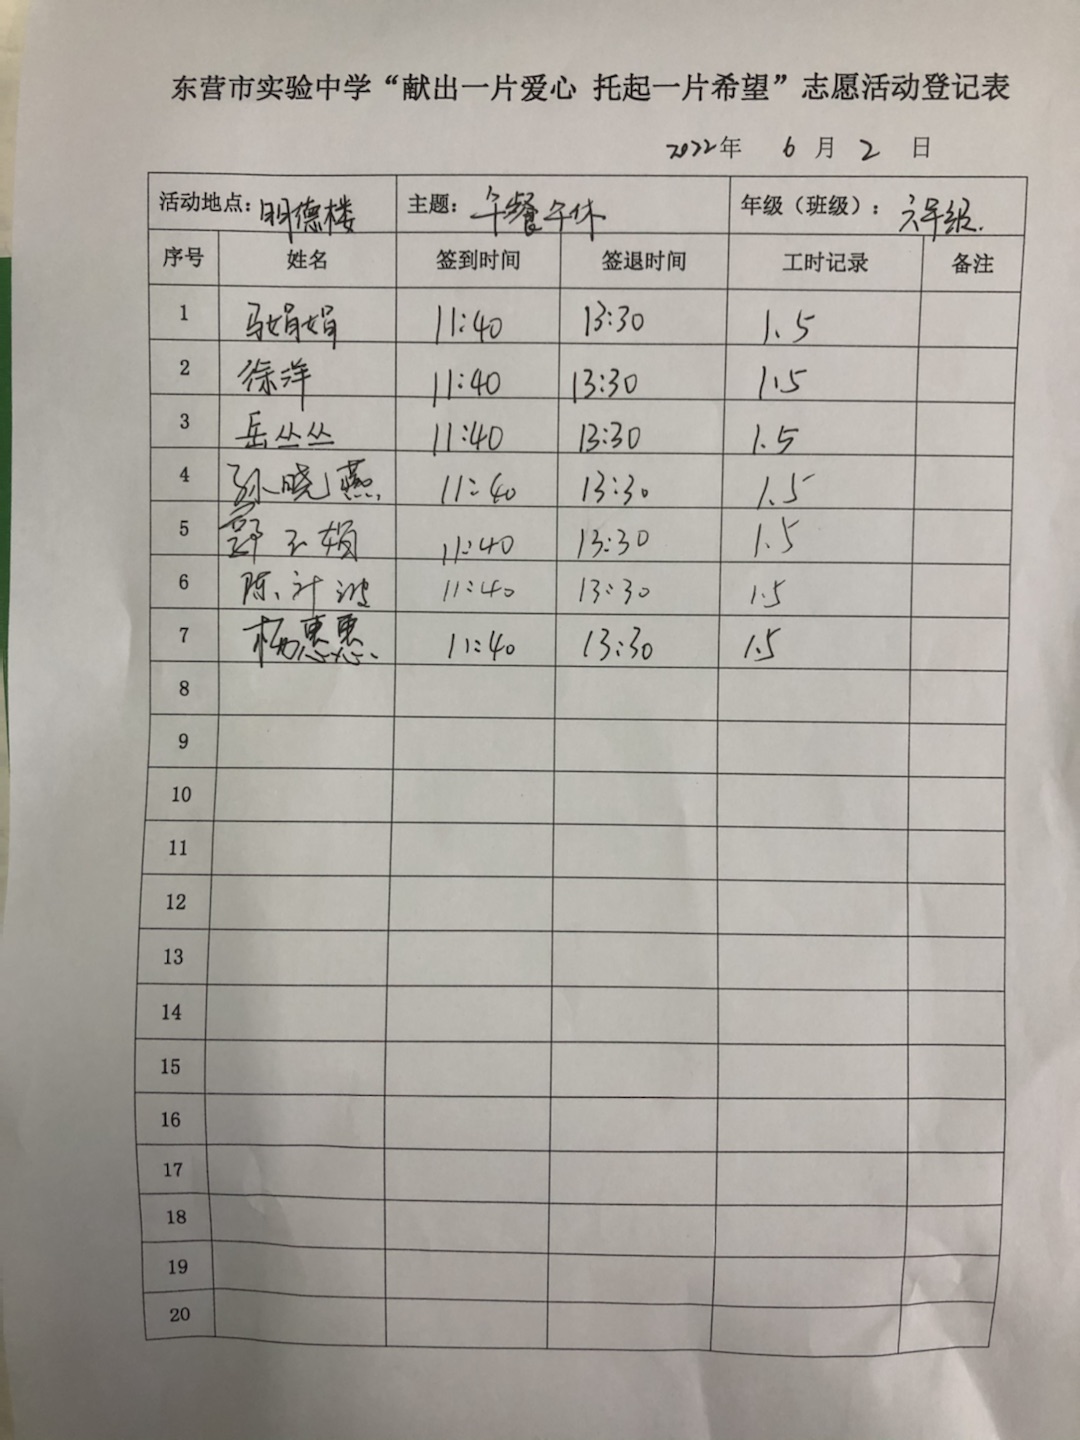 东营市实验中学“献出一片爱心 托起一片希望”志愿活动登记表
2022年 6 月 2 日
活动地点：明德楼 主题：午餐午休 年级（班级）：六年级.
序号 姓名 签到时间 签退时间 工时记录 备注
1 马娟娟 11:40 13:30 1.5
2 徐洋 11:40 13:30 1.5
3 岳丛丛 11:40 13:30 1.5
4 孙晓燕 11:40 13:30 1.5
5 11:40 13:30 1.5
6 陈计波 11:40 13:30 1.5
7 杨惠惠 11:40 13:30 1.5
8
9
10
11
12
13
14
15
16
17
18
19
20